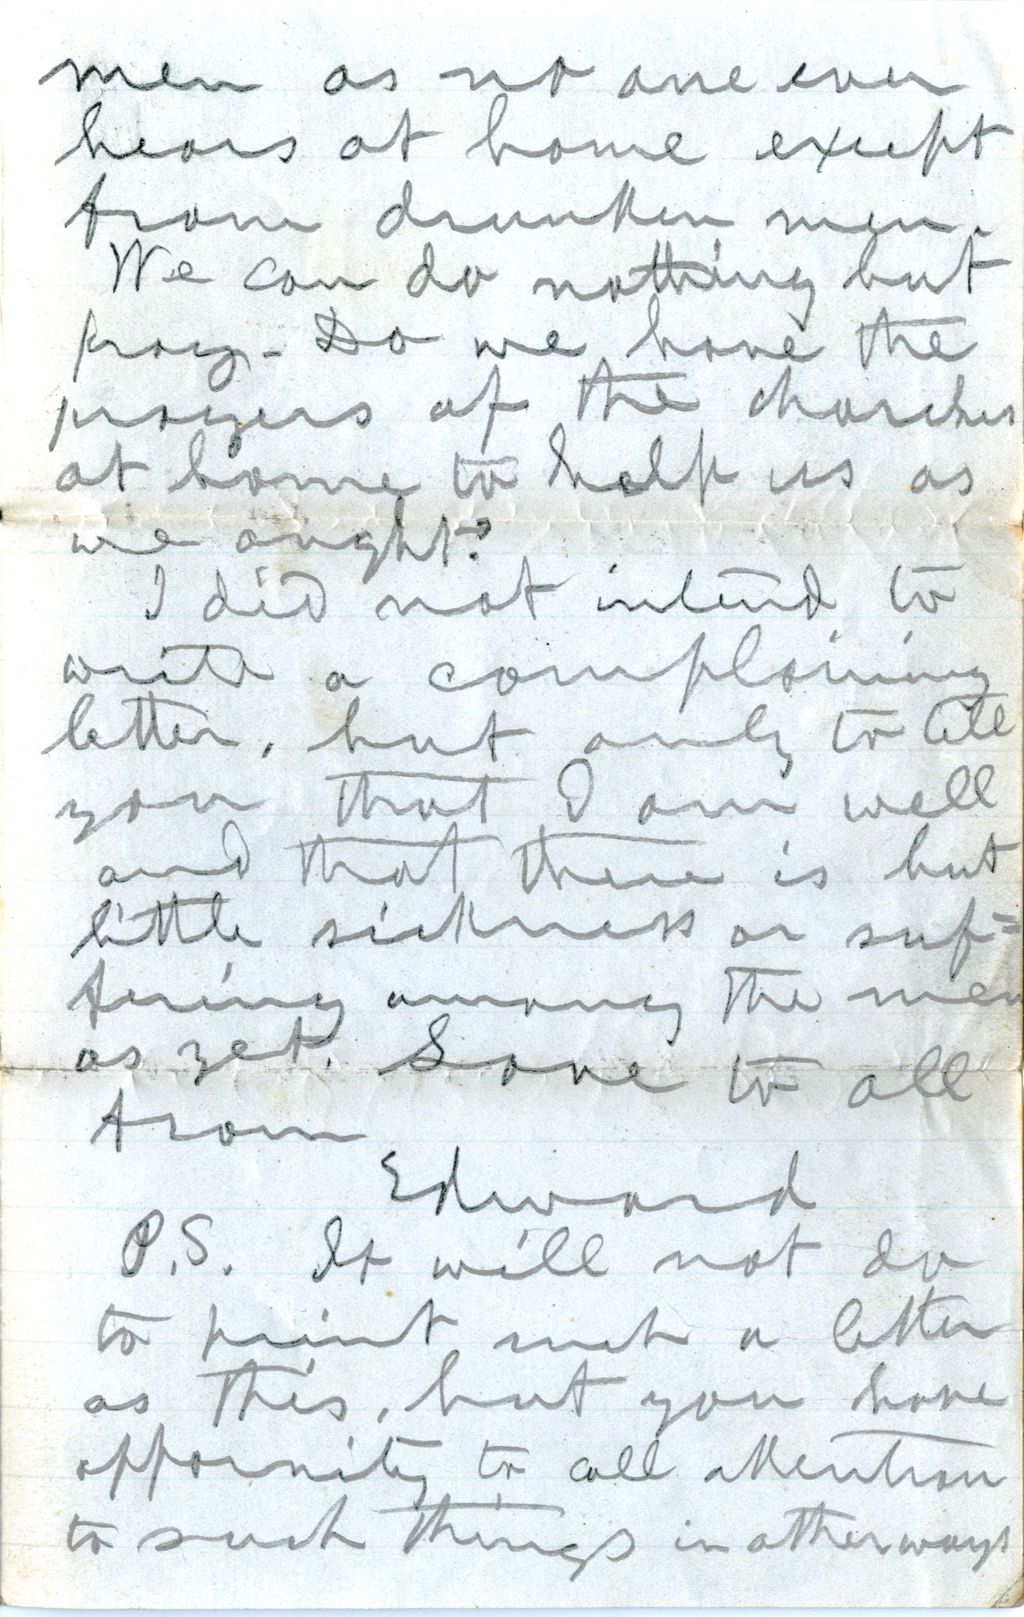 men as no one ever
hears at home except
from drunken men.
We can do nothing but
pray - Do we have the
prayers of the churches
at home to help us as
we ought?
I did not intend to
write a complaining
letter, but only to tell
you that I am well
and that there is but
little sickness or suf=
fering among the men
as yet. Love to all
from
Edward
P.S. It will not do
to print such a letter
as this, but you have
opportnity to call attention
to such things in other ways